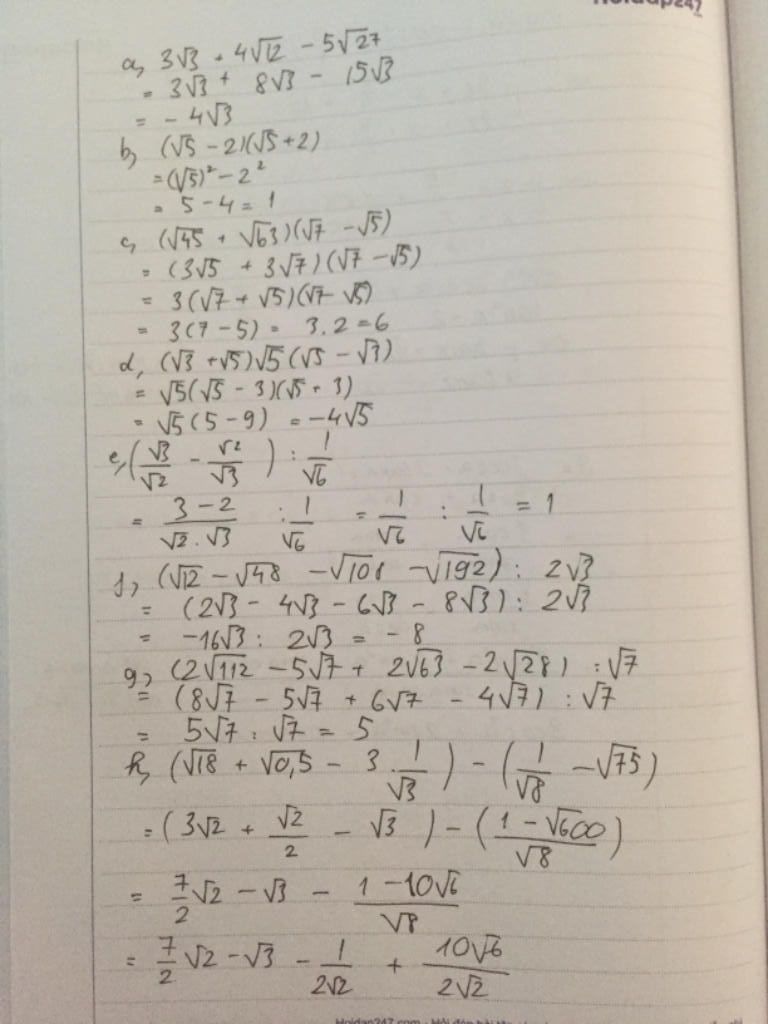 Hoidap247
a, 3√3 + 4√12 - 5√27
= 3√3 + 8√3 - 15√3
= - 4√3
b, (√5 - 2)(√5 + 2)
= (√5)² - 2²
= 5 - 4 = 1
c, (√45 + √63)(√7 - √5)
= (3√5 + 3√7)(√7 - √5)
= 3(√7 + √5)(√7 - √5)
= 3(7 - 5) = 3.2 = 6
d, (√3 + √5)√5(√5 - √3)
= √5(√5 - 3)(√5 + 3)
= √5(5 - 9) = -4√5
e, (√3/√2 - √2/√3) : 1/√6
= (3 - 2)/(√2 . √3) : 1/√6 = 1/√6 : 1/√6 = 1
f, (√12 - √48 - √108 - √192) : 2√3
= (2√3 - 4√3 - 6√3 - 8√3) : 2√3
= -16√3 : 2√3 = - 8
g, (2√112 - 5√7 + 2√63 - 2√28) : √7
= (8√7 - 5√7 + 6√7 - 4√7) : √7
= 5√7 : √7 = 5
h, (√18 + √0,5 - 3 . 1/√3) - (1/√8 - √75)
= (3√2 + √2/2 - √3) - ((1 - √600)/√8)
= 7/2 √2 - √3 - (1 - 10√6)/√8
= 7/2 √2 - √3 - 1/2√2 + 10√6/2√2